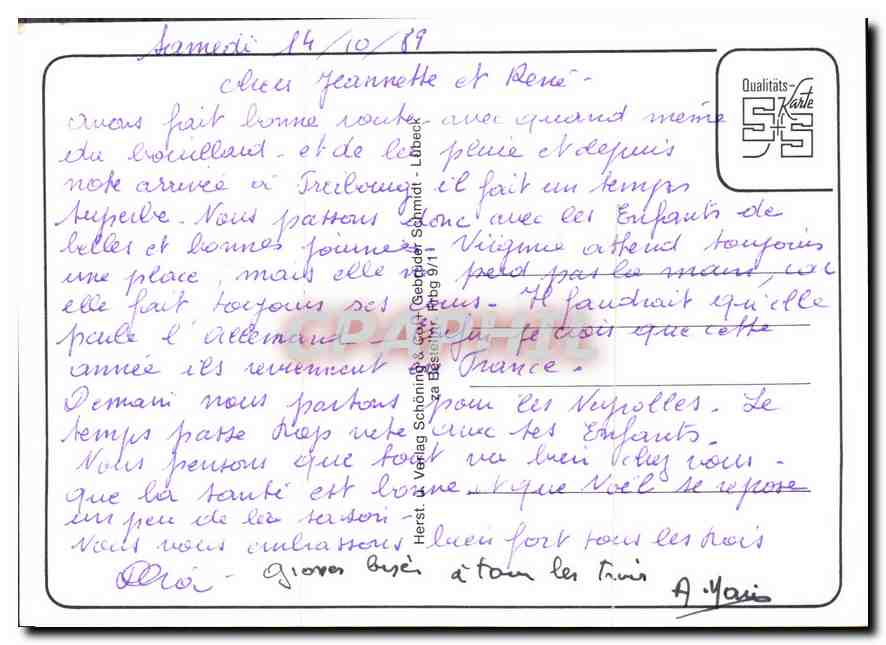 Samedi 14/10/89
Chers Jeannette et René -
avons fait bonne route - avec quand même
du brouillard - et de la pluie et depuis
note arrivée à Freibourg il fait un temps
superbe - Nous passons donc avec les Enfants de
belles et bonnes journées Virginie attend toujours
une place, mais elle ne perd pas la main, car
elle fait toujours ses - Il faudrait qu'elle
parle l'Allemand - je crois que cette
année ils reviennent en France.
Demain nous partons pour les Neyrolles. Le
temps passe trop vite avec ses Enfants.
Nous pensons que tout va bien chez vous -
que la santé est bonne et que Noël se repose
un peu de la saison -
Nous vous embrassons bien fort tous les trois
Grosses bises à tous les trois
A. Marie
Qualitäts-Karte
S+S
Herst. u. Verlag Schöning & Co + Gebrüder Schmidt - Lübeck
za Bestellnr. Frbg 9/11
CPAPHIL